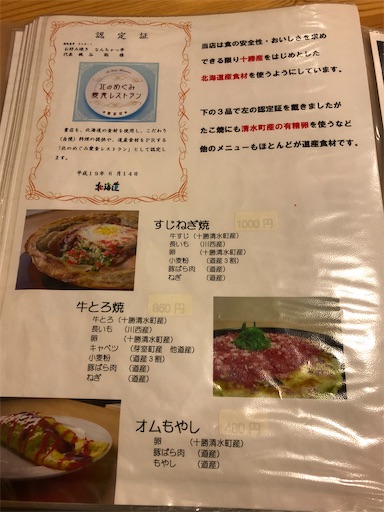 認定証
お好み焼き なんちゃっ亭
北のめぐみ
愛食レストラン
貴店を、北海道の食材を使用し、こだわり
（自慢）料理の提供や、道産食材をＰＲする
「北のめぐみ愛食レストラン」として認定しま
す。
平成１９年 ６月１４日
北海道
当店は食の安全性・おいしさを求め
できる限り十勝産をはじめとした
北海道産食材を使うようにしています。
下の３品で左の認定証を戴きましたが
たこ焼にも清水町産の有精卵を使うなど
他のメニューもほとんどが道産食材です。
すじねぎ焼 1000円
牛すじ（十勝清水町産）
長いも （川西産）
卵 （十勝清水町産）
小麦粉 （道産３割）
豚ばら肉 （道産）
ねぎ （道産）
牛とろ焼 860円
牛とろ（十勝清水町産）
長いも （川西産）
卵 （十勝清水町産）
キャベツ （芽室町産 他道産）
小麦粉 （道産３割）
豚ばら肉 （道産）
ねぎ （道産）
オムもやし 400円
卵 （十勝清水町産）
豚ばら肉 （道産）
もやし （道産）